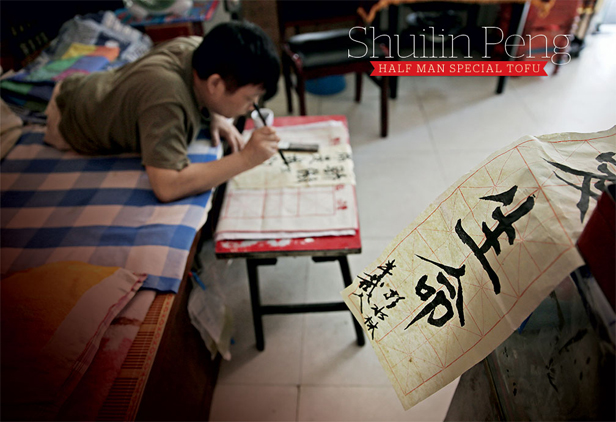 Shuilin Peng
HALF MAN SPECIAL TOFU
生命
彭水林
半截人